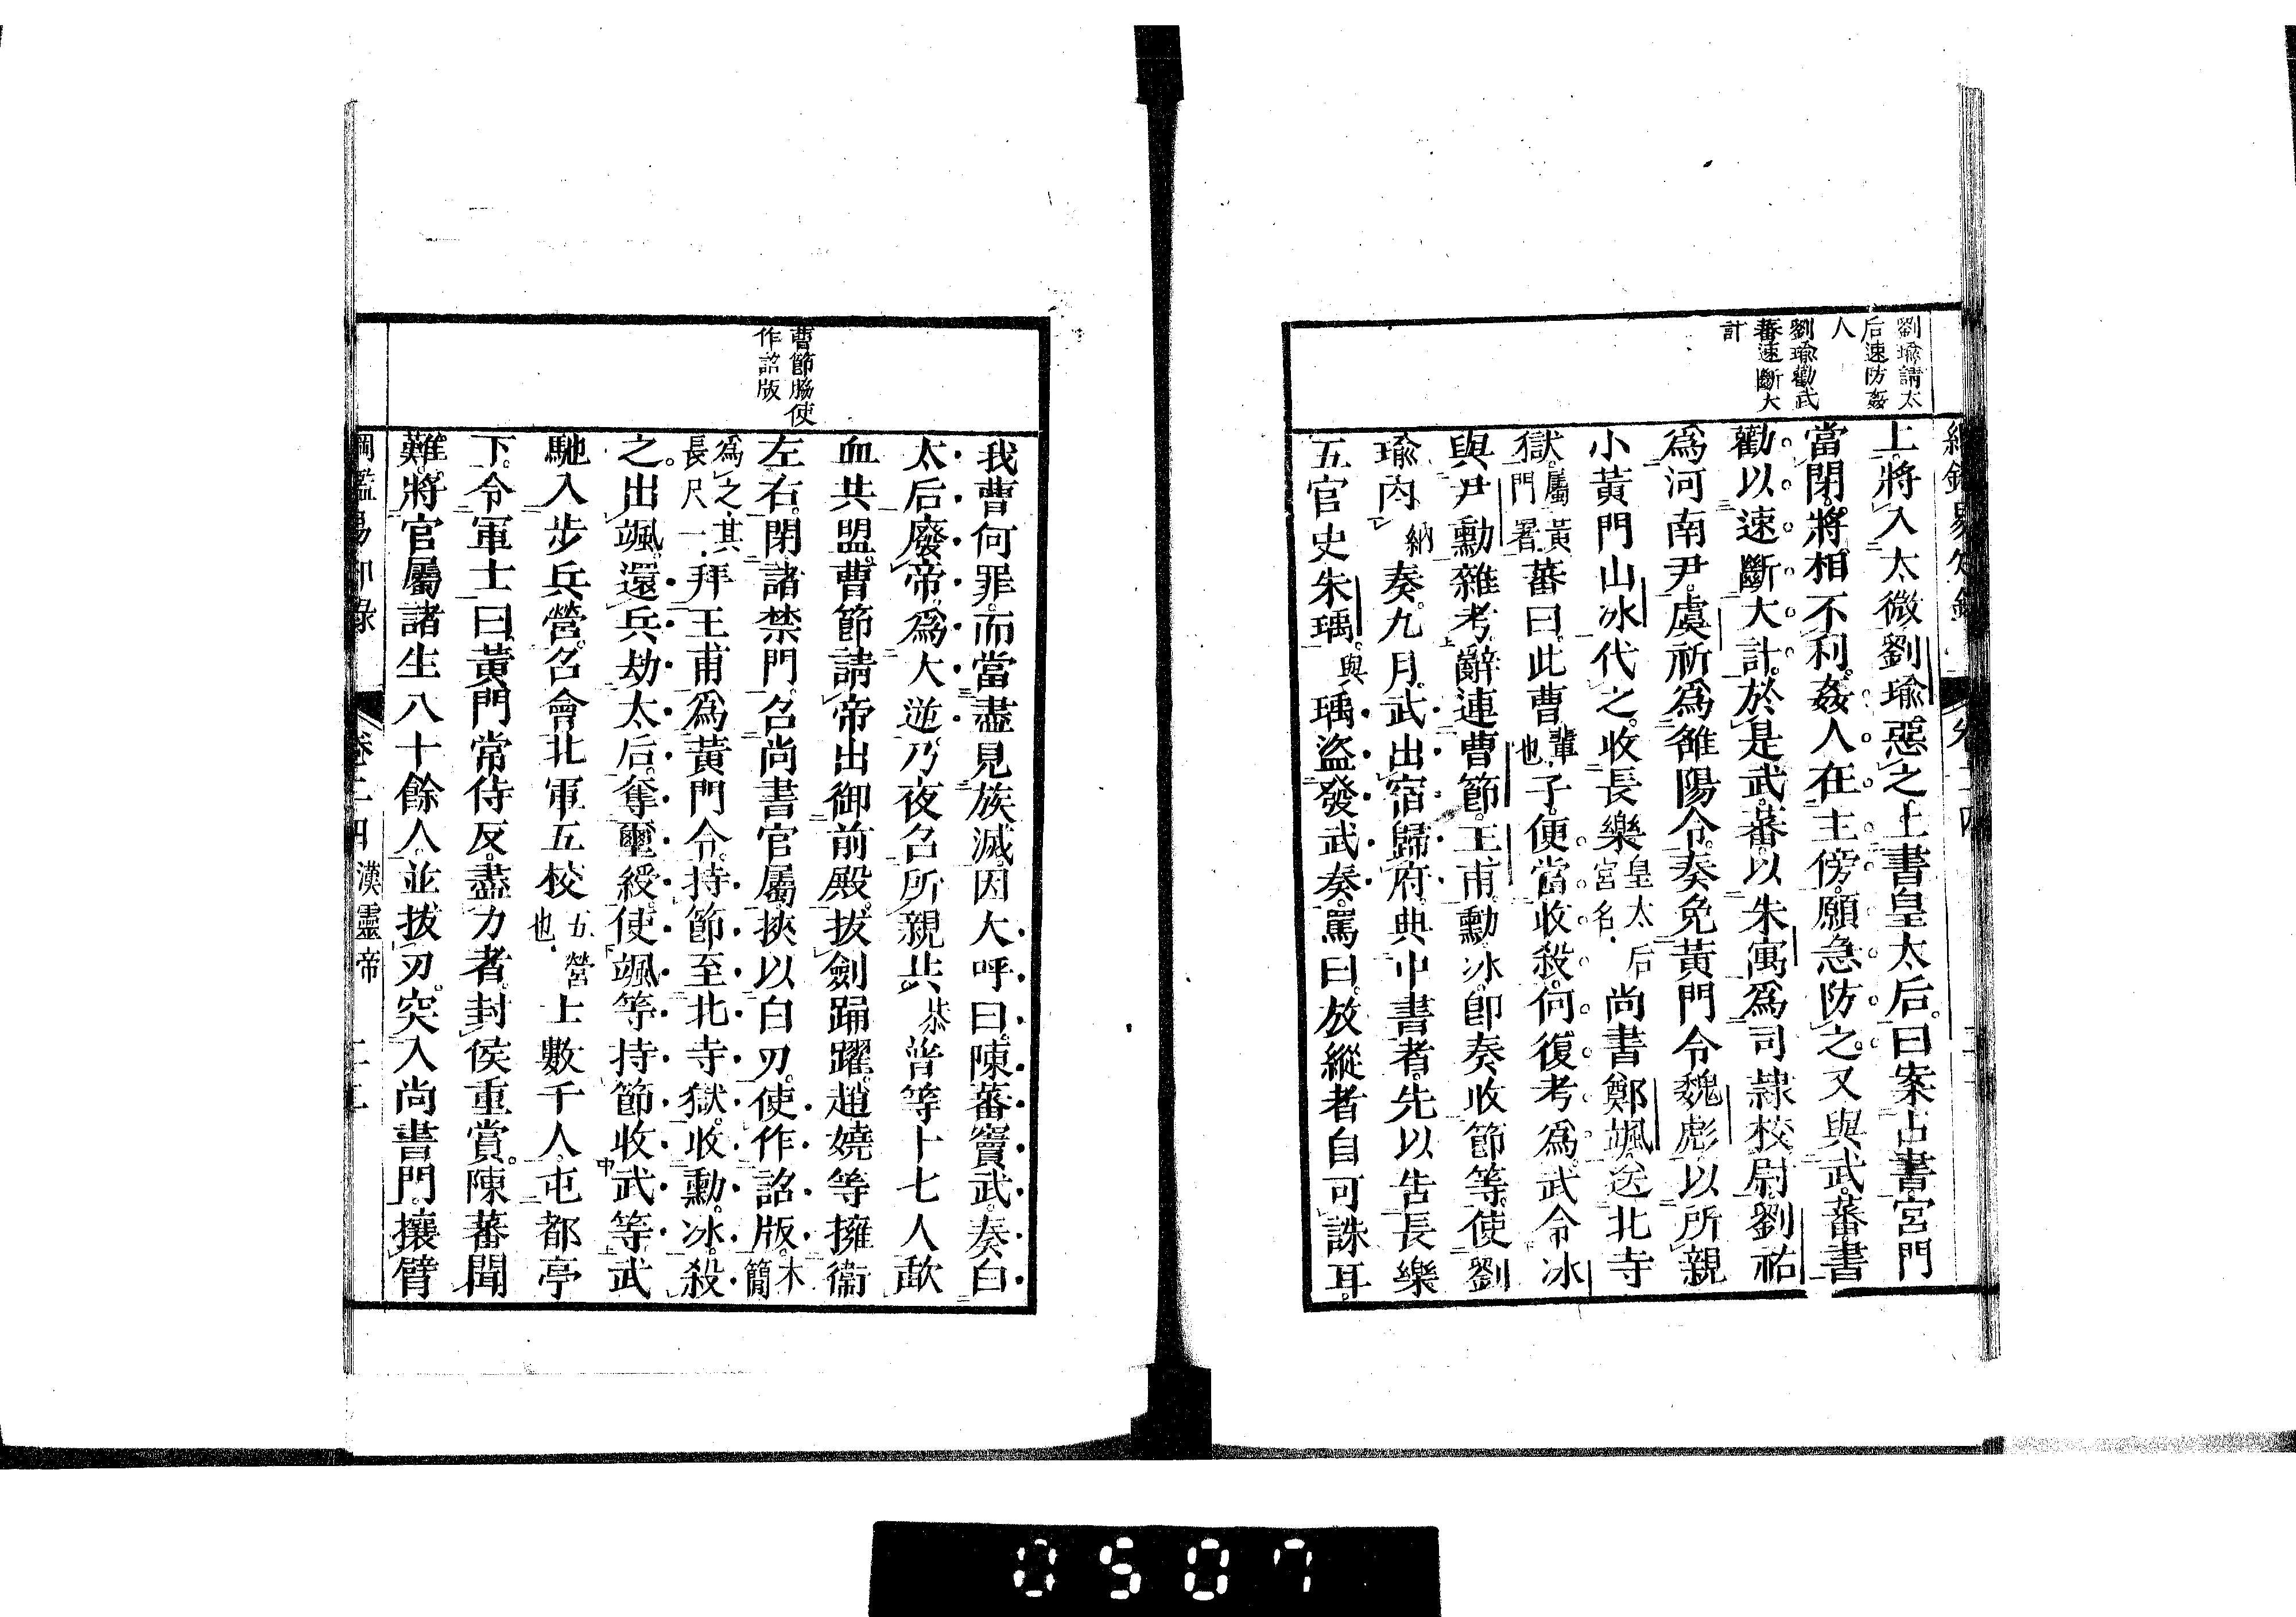 劉瑜請太
后速防姦
人
劉瑜勸武
蕃速斷大
計
上將入太微劉瑜惡之上書皇太后曰案占書宮門
當閉將相不利姦人在主傍願急防之又與武蕃書
勸以速斷大計於是武蕃以朱寓爲司隷校尉劉祐
爲河南尹虞祈爲雒陽令奏免黃門令魏彪以所親
小黃門山冰代之收長樂皇太后宮名尚書鄭颯送北寺
獄屬黃門署蕃曰此曹輩也子便當收殺何復考爲武令冰
與尹勳雜考辭連曹節王甫勳冰卽奏收節等使劉
瑜內納奏九月武出宿歸府典中書者先以告長樂
五官史朱瑀與瑀盜發武奏罵曰放縱者自可誅耳
曹節脇使
作詔版
我曹何罪而當盡見族滅因大呼曰陳蕃竇武奏白
太后廢帝爲大逆乃夜召所親共恭普等十七人歃
血共盟曹節請帝出御前殿拔劍踊躍趙嬈等擁衞
左右閉諸禁門召尚書官屬挾以白刃使作詔版木簡
爲之其長尺一拜王甫爲黃門令持節至北寺獄收勳冰殺
之出颯還兵劫太后奪璽綬使颯等持節收武等武
馳入步兵營召會北軍五校五營也上數千人屯都亭
下令軍士曰黃門常侍反盡力者封侯重賞陳蕃聞
難將官屬諸生八十餘人並拔刃突入尚書門攘臂
綱鑑易知錄 卷二四 漢靈帝